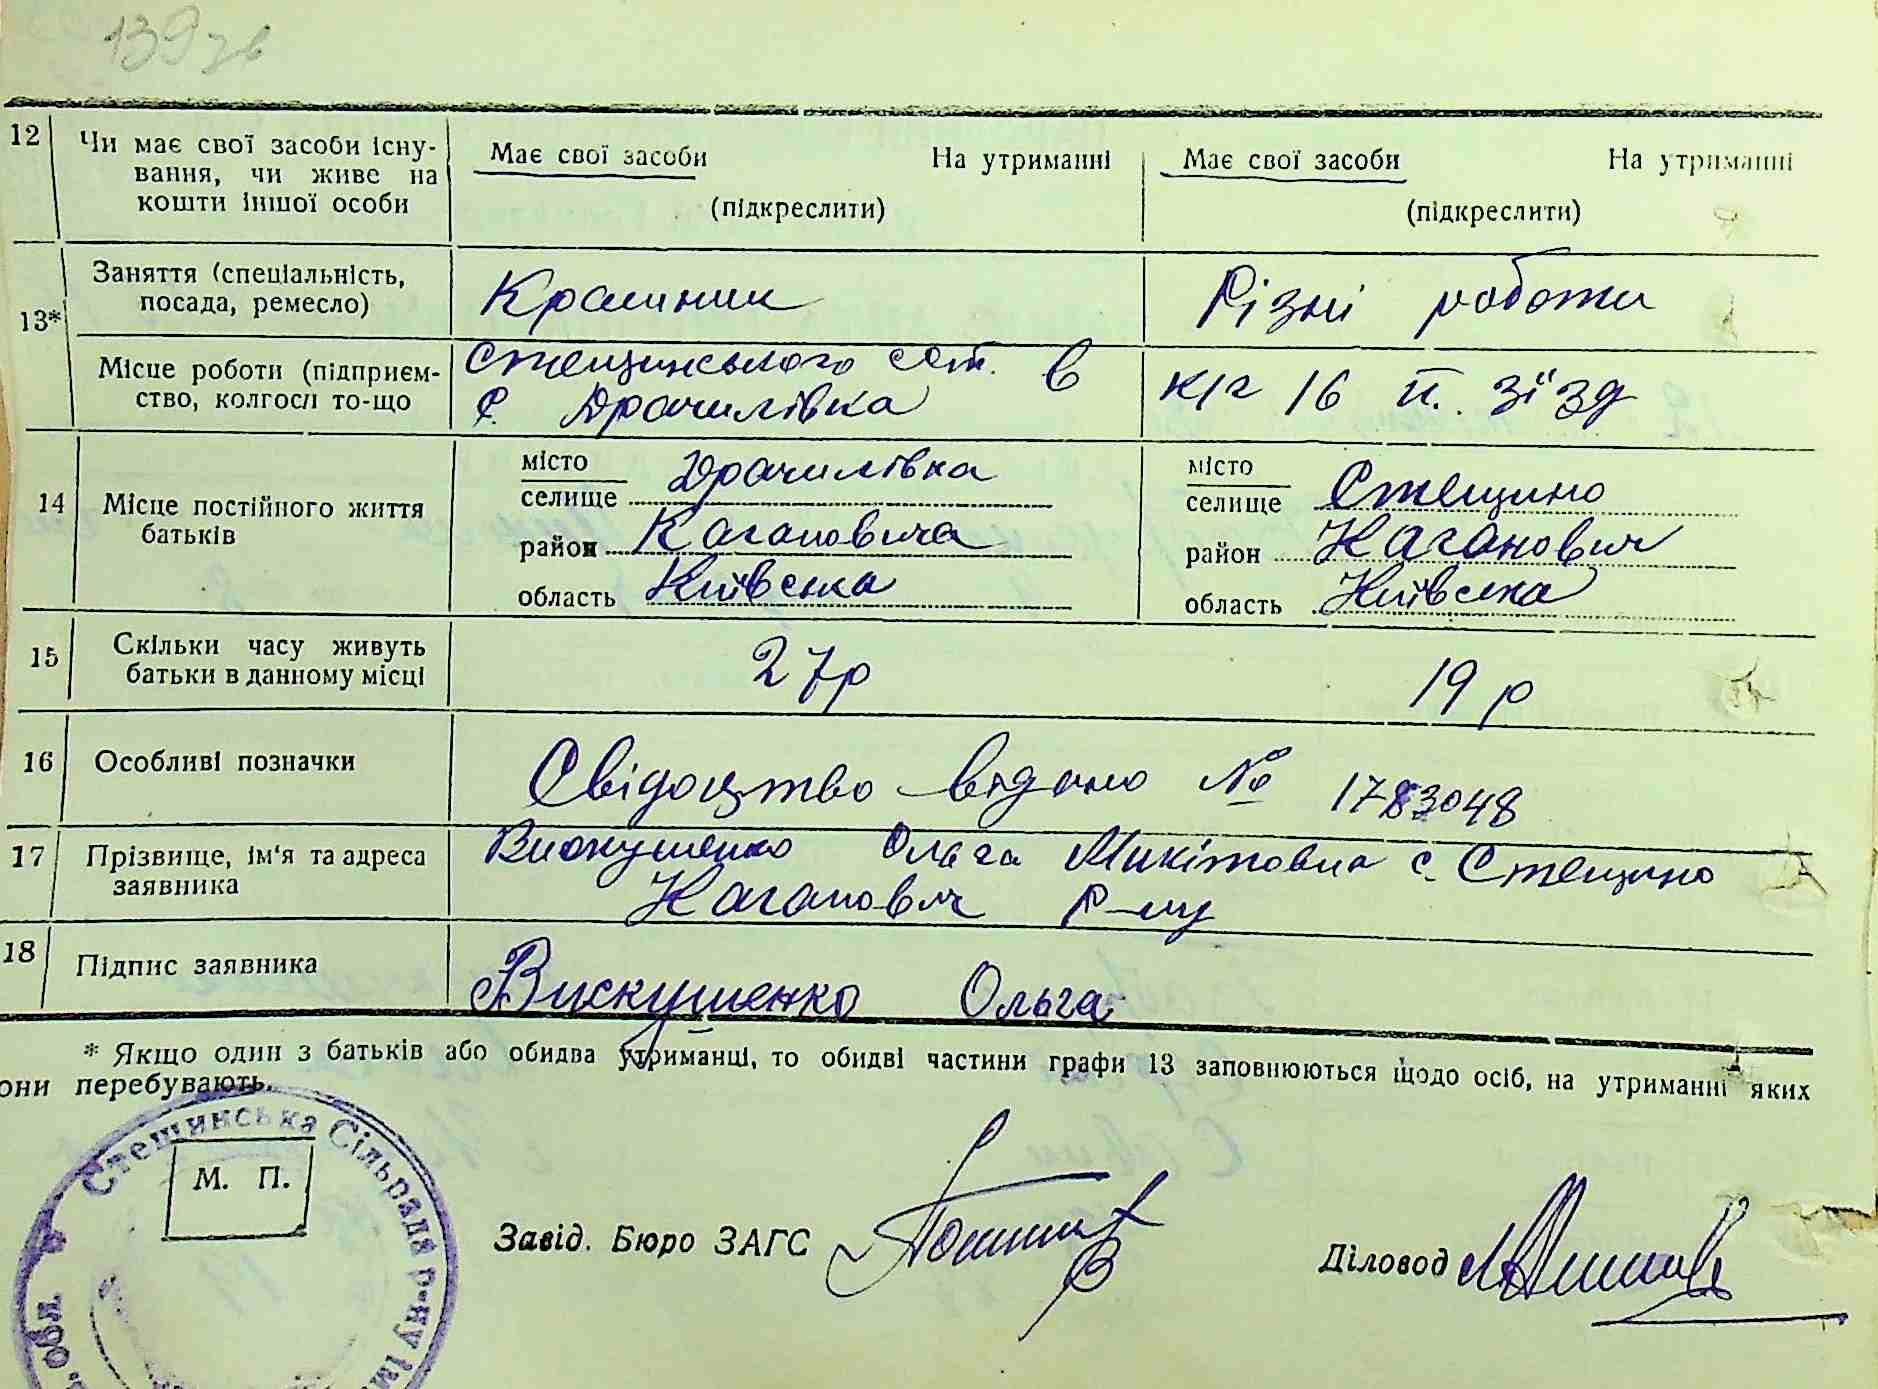 139 зв
12 Чи має свої засоби існу-
вання, чи живе на
кошти іншої особи
Має свої засоби На утриманні
(підкреслити)
Має свої засоби На утриманні
(підкреслити)
13* Заняття (спеціальність,
посада, ремесло)
Крамник
Різні роботи
Місце роботи (підприєм-
ство, колгосп то-що
Стещинського сст. в
с. Драчилівка
к/г 16 п. зїзд
14 Місце постійного життя
батьків
місто
селище Драчилівка
район Кагановича
область Київська
місто
селище Стещино
район Каганович
область Київська
15 Скільки часу живуть
батьки в данному місці
27р
19 р
16 Особливі позначки
Свідоцтво видано № 1783048
17 Прізвище, ім'я та адреса
заявника
Вискушенко Ольга Микітовна с. Стещино
Каганович р-ну
18 Підпис заявника
Вискушенко Ольга
* Якщо один з батьків або обидва утриманці, то обидві частини графи 13 заповнюються щодо осіб, на утриманні яких
они перебувають.
Стещинська Сільрада р-ну ім.
обл.
М. П.
Завід. Бюро ЗАГС
Діловод